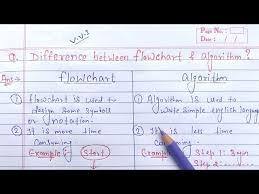 V.V.I
Page No. :
Date : / /
Q. Difference between flowchart & algorithm?
Ans→ flowchart Algorithm
① flowchart is used to design some symbols or notation.
① Algorithm is used to write simple english language
② It is more time Consuming
② It is less time Consuming
Example: Start
Example: Step 1: Start
Step 2: